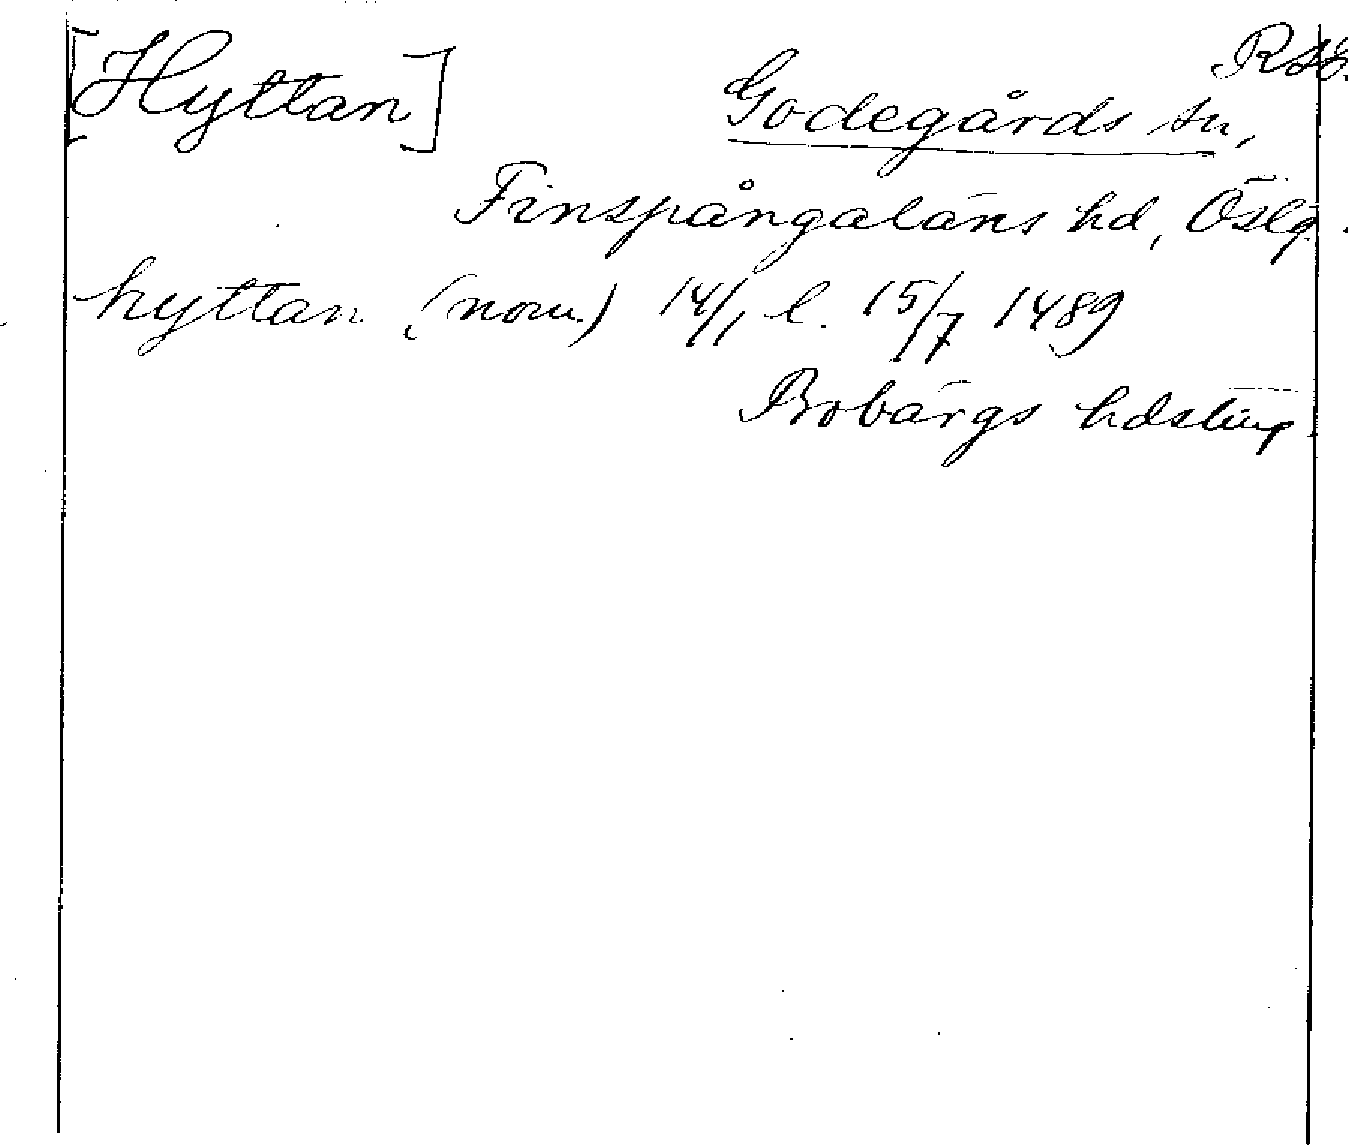 [Hyttan]
Godegårds sn,
Finspångaläns hd, Östg.
hyttan (nom.) 14/1 l. 15/7 1489
Bobärgs hdsting